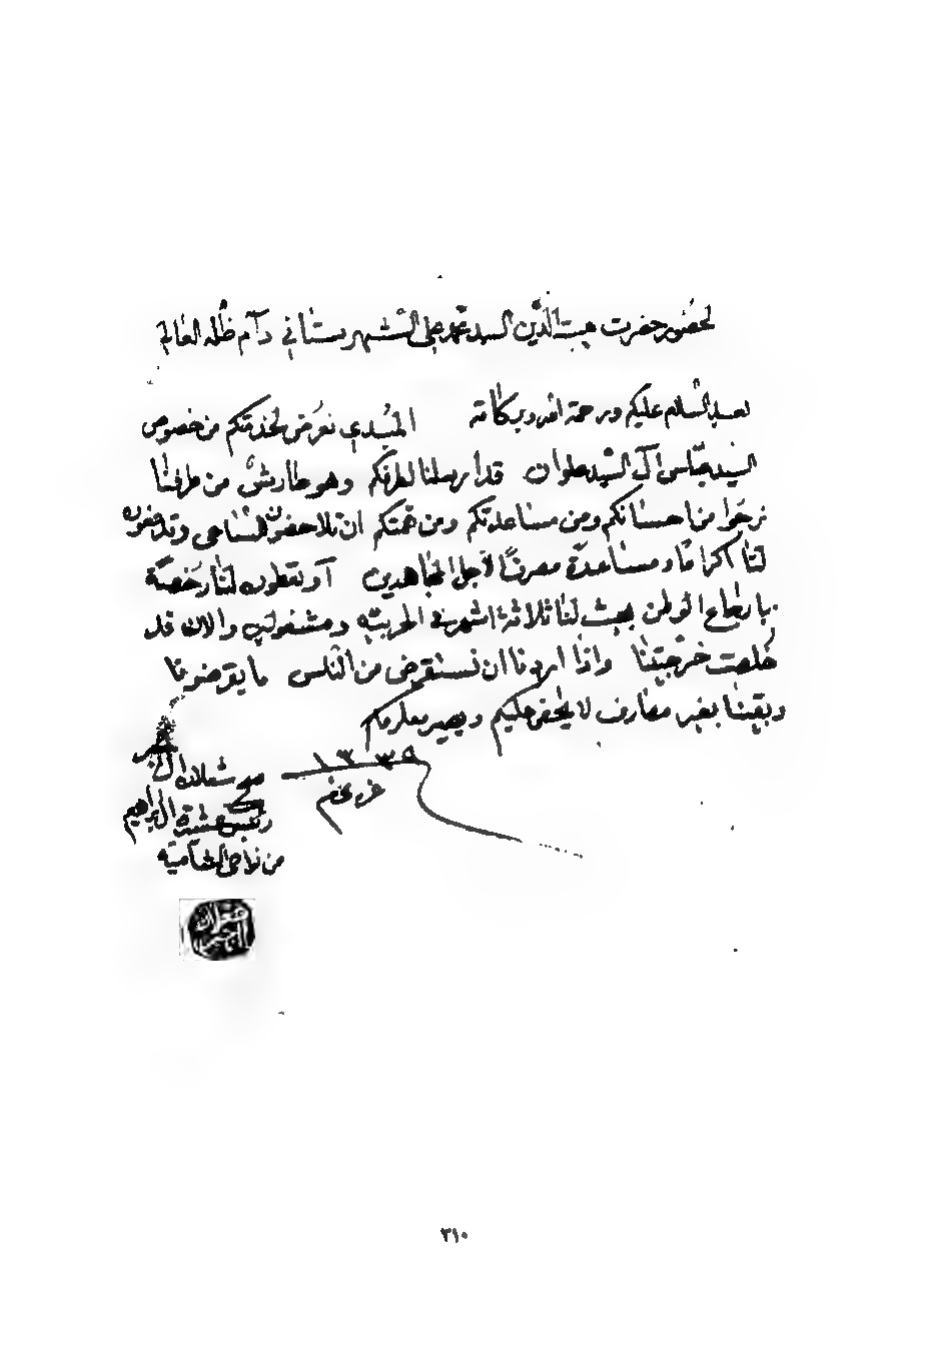 لحضور حضرت هبت الدين السيد محمد علي الشهرستاني دام ظله العالي
بعد السلام عليكم ورحمة الله وبركاته المبدي نعرض لخدمتكم من خصوص
السيد عباس آل السيد علوان قد ارسلنا لطرفكم وهو طارش من طرفنا
نرجوا من احسانكم ومن مساعدتكم ومن همتكم ان تلاحضون
لنا اكراما ومساعدة مصرفا لأجل المجاهدين أو تعطون لنا رخصة
بارجاع الوطن بحيث لنا ثلاثة اشهر في الحربيه ومشغولين والان قد
خلصت خرجيتنا واذا اردنا ان نستقرض من الناس ما يقرضونا
وبقينا بغير مصارف لا يخفى عليكم ويصير معلومكم
١٣٣٥
غره محرم
شعلان
رئيس عشيرة البراهيم
من نواحي الشاميه
٣١٠